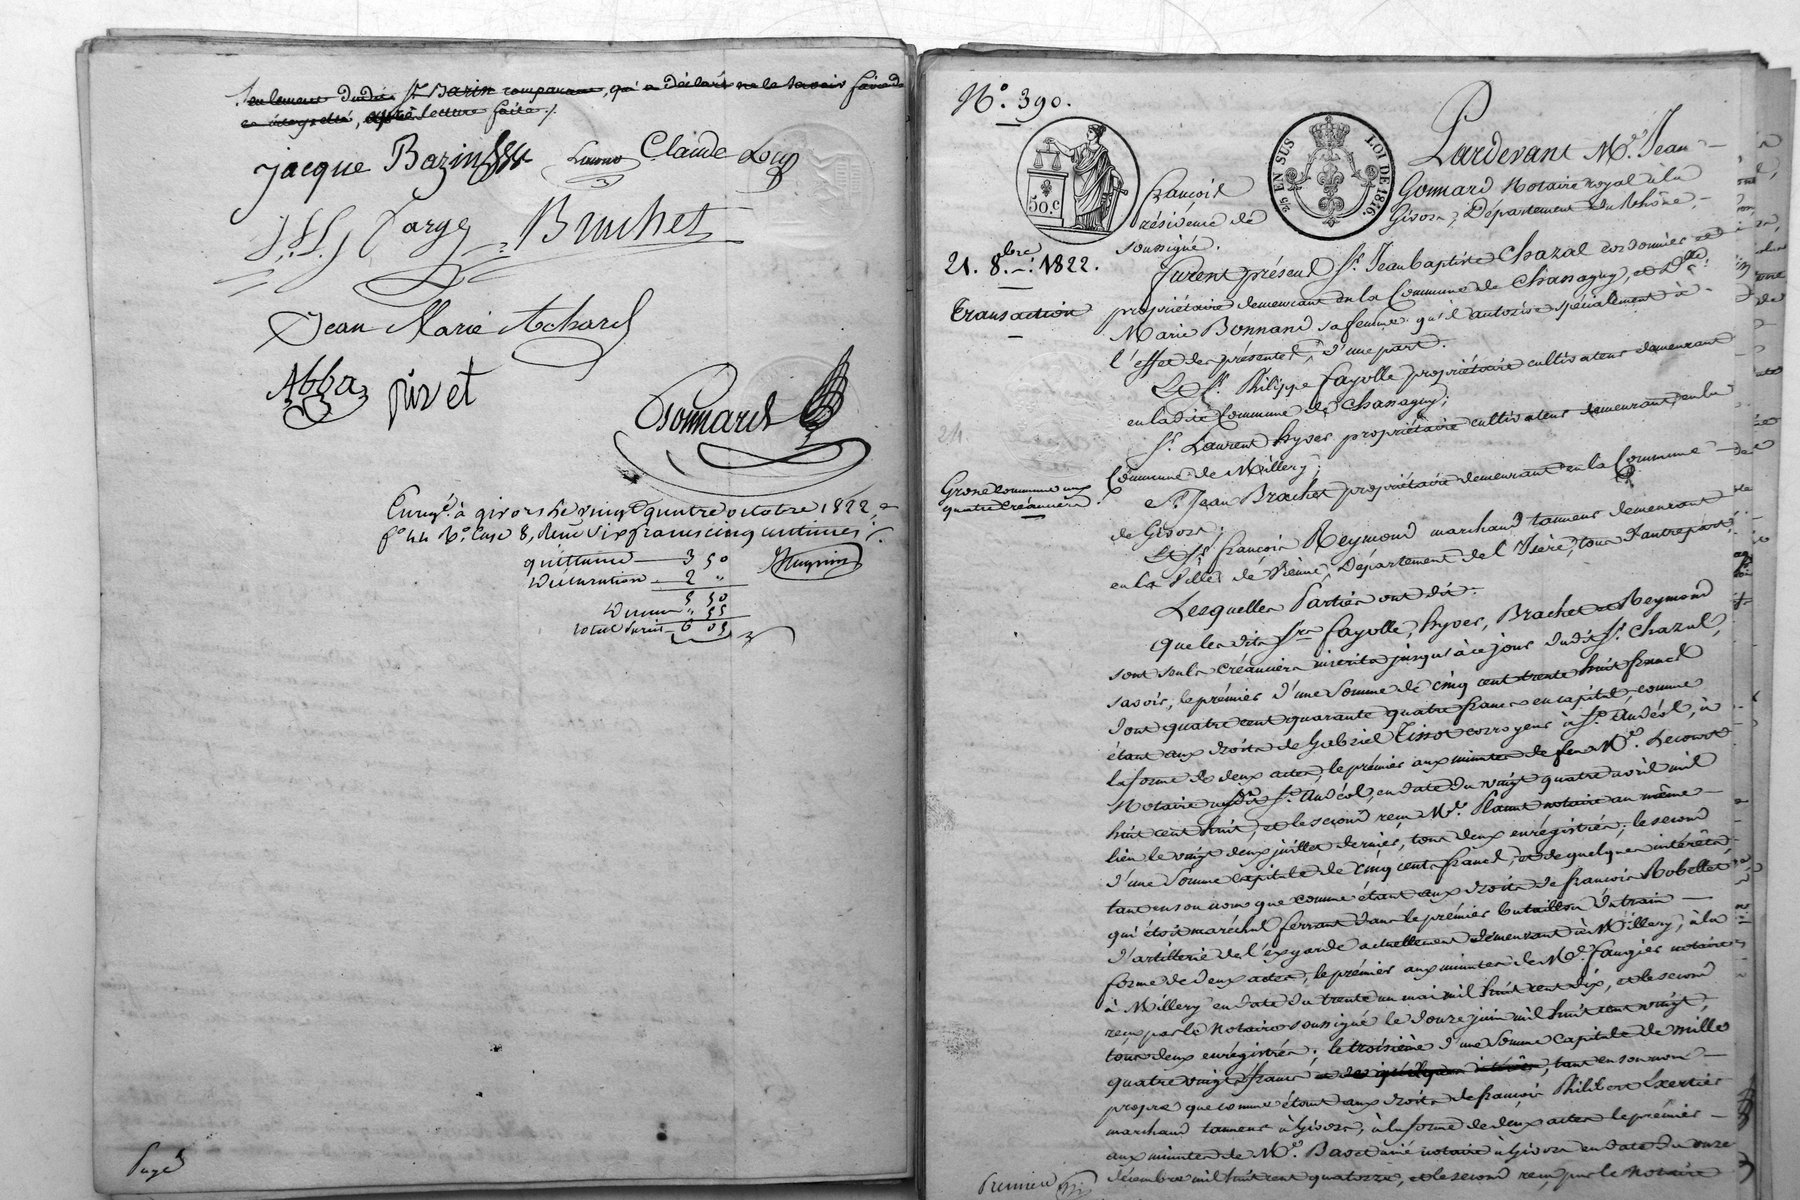 seulement dudit Sr Bazin comparant, qui a déclaré ne le savoir faire de
ce interpellé, après lecture faite /.
jacque Bazin
Claude Loup
Farge
Bruchet
Jean Marie Achard
Abba
pivet
Gonnard
Enreg.é à givors le vingt quatre octobre 1822,
f.o 44 V.o Case 8, Reçu Six francs cinq centimes :
quittance 3 50
Déclaration 2 "
5 50
Décime " 55
total Six 6 05
Page
N.o 390.
50.C
25 EN SUS
LOI DE 1816.
Pardevant M.e Jean
François Gonnard Notaire royal à la
résidence de Givors, Département du Rhône,
soussigné.
21. 8.bre 1822.
Furent présens Sr. Jean baptiste Chazal cordonnier et
Transaction
propriétaire demeurant en la Commune de Chassagny, et D.lle
Marie Bonnand sa femme qu'il autorise spécialement à
l'effet des présentes, d'une part.
Et Sr. Philippe Fayolle propriétaire cultivateur demeurant
en ladite Commune de Chassagny;
Sr. Laurent hyver propriétaire cultivateur demeurant en la
Commune de Millery;
Grosse commune aux
quatre Créanciers
et Sr. Jean Brachet propriétaire demeurant en la Commune
de Givors;
Et Sr. françois Reymond marchand tanneur demeurant
en la Ville de Vienne, Département de l'Isère, tous d'autre part;
Lesquelles Parties ont dit:
Que lesdits Srs. Fayolle, hyver, Brachet et Reymond
sont seuls créanciers inscrits jusqu'à ce jour dudit Sr. Chazal,
savoir, le prémier d'une somme de cinq cent trente huit francs
dont quatre cent quarante quatre francs en capital, comme
étant aux droits de Gabriel Tissot corroyeur à St. Andéol, à
la forme de deux actes, le prémier aux minutes de feu M.e Lecourt
Notaire audit St. Andéol, en date du vingt quatre avril mil
huit cent huit, et le second reçu M.e Plasse notaire au même
lieu le vingt deux juillet dernier, tous deux enrégistrés; le second
d'une somme capitale de cinq cents francs, et de quelques intérêts,
tant en son nom que comme étant aux droits de françois Robellet
qui étoit maréchal ferrant dans le prémier bataillon du train
d'artillerie de l'exgarde actuellement demeurant à Millery, à la
forme de deux actes, le prémier aux minutes de M.e Faugier notaire
à Millery en date du trente un mai mil huit cent dix, et le second
reçu par le Notaire soussigné le douze juin mil huit cent vingt,
tous deux enrégistrés; le troisième d'une somme capitale de mille
quatre vingt francs et de quelques intérêts, tant en son nom
propre que comme étant aux droits de françois Philibert Exertier
marchand tanneur à Givors, à la forme de deux actes le prémier
aux minutes de M.e Basset ainé notaire à Givors en date du onze
décembre mil huit cent quatorze, et le second reçu par le Notaire
Première